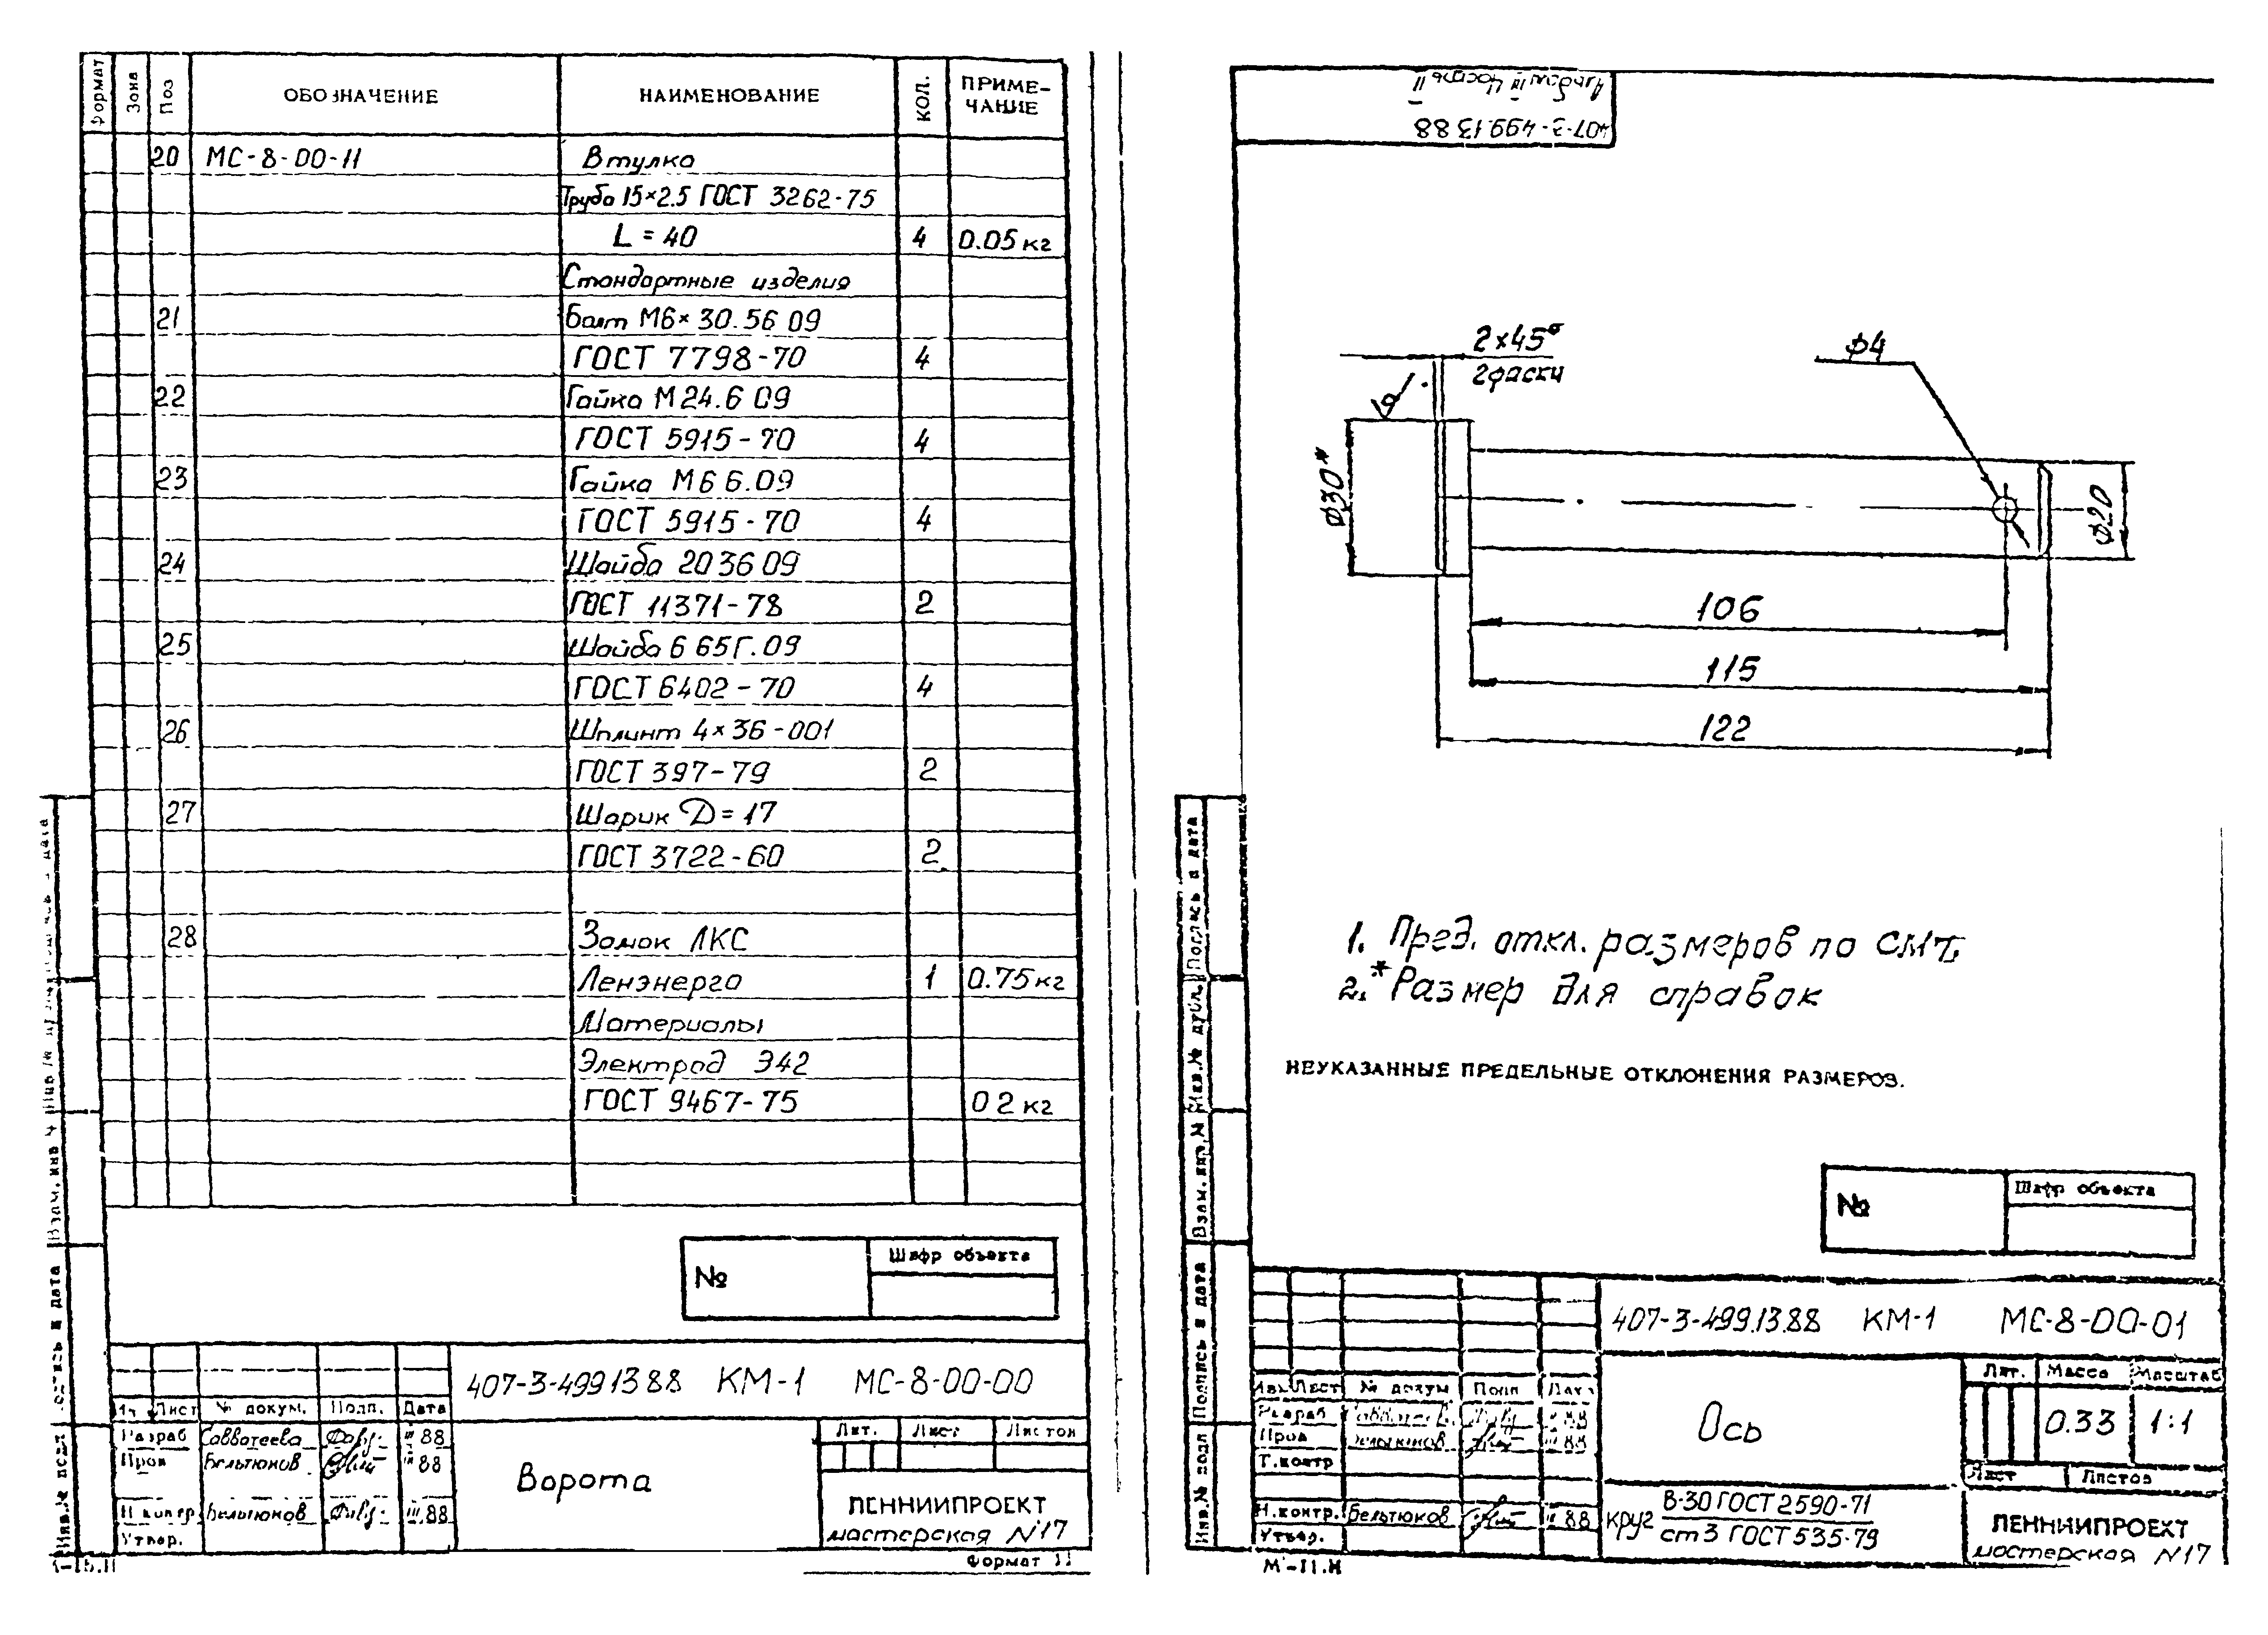 Формат Зона Поз ОБОЗНАЧЕНИЕ НАИМЕНОВАНИЕ КОЛ. ПРИМЕ-
ЧАНИЕ
20 МС-8-00-11 Втулка
Труба 15×2.5 ГОСТ 3262-75
L = 40 4 0.05 кг
Стандартные изделия
21 Болт М6×30.56 09
ГОСТ 7798-70 4
22 Гайка М24.6 09
ГОСТ 5915-70 4
23 Гайка М6 6.09
ГОСТ 5915-70 4
24 Шайба 20 36 09
ГОСТ 11371-78 2
25 Шайба 6 65Г.09
ГОСТ 6402-70 4
26 Шплинт 4×36-001
ГОСТ 397-79 2
27 Шарик D=17
ГОСТ 3722-60 2
28 Замок ЛКС
Ленэнерго 1 0.75 кг
Материалы
Электрод Э42
ГОСТ 9467-75 0 2 кг
№ Шифр объекта
407-3-499 13 88 КМ-1 МС-8-00-00
Лист № докум. Подп. Дата
Разраб Савватеева III 88
Пров Бельтюков III 88
Н контр. Бельтюков III.88
Утвер.
Ворота
Лит. Лист Листов
ЛЕННИИПРОЕКТ
мастерская N17
Формат 11
Взам. инв №
Подпись и дата
Инв.№ подл
Альбом III Часть II
407-3-499.13 88
2×45°
2фаски
φ4
φ30*
φ20
106
115
122
1. Пред. откл. размеров по СМ7.
2.* Размер для справок
НЕУКАЗАННЫЕ ПРЕДЕЛЬНЫЕ ОТКЛОНЕНИЯ РАЗМЕРОВ.
№ Шифр объекта
407-3-499.13.88 КМ-1 МС-8-00-01
Изм Лист № докум Подп Дата
Разраб III 88
Пров Бельтюков III 88
Т.контр
Н.контр. Бельтюков III 88
Утвер.
Ось
Лит. Масса Масштаб
0.33 1:1
Лист Листов
круг В-30 ГОСТ 2590-71
ст3 ГОСТ 535-79
ЛЕННИИПРОЕКТ
мастерская N17
Подпись и дата
Инв.№ дубл.
Взам. инв.№
Подпись и дата
Инв.№ подл